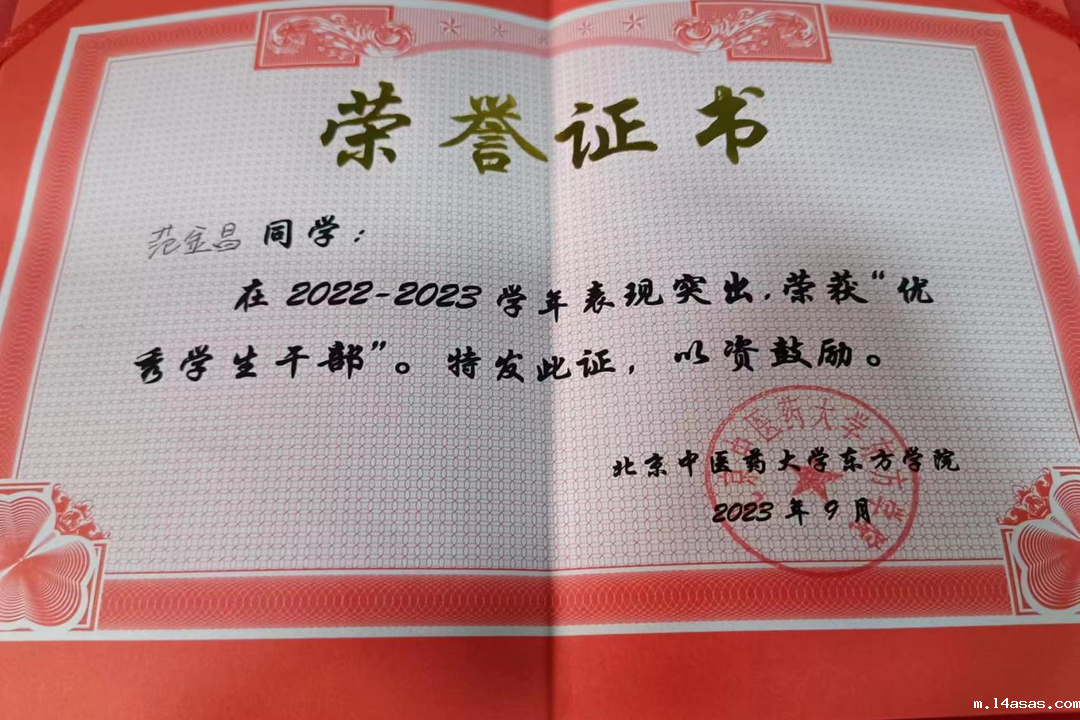 荣誉证书
范金昌 同学：
在 2022-2023 学年表现突出，荣获“优
秀学生干部”。特发此证，以资鼓励。
北京中医药大学东方学院
2023 年 9 月
北京中医药大学东方学院
m.14asas.com